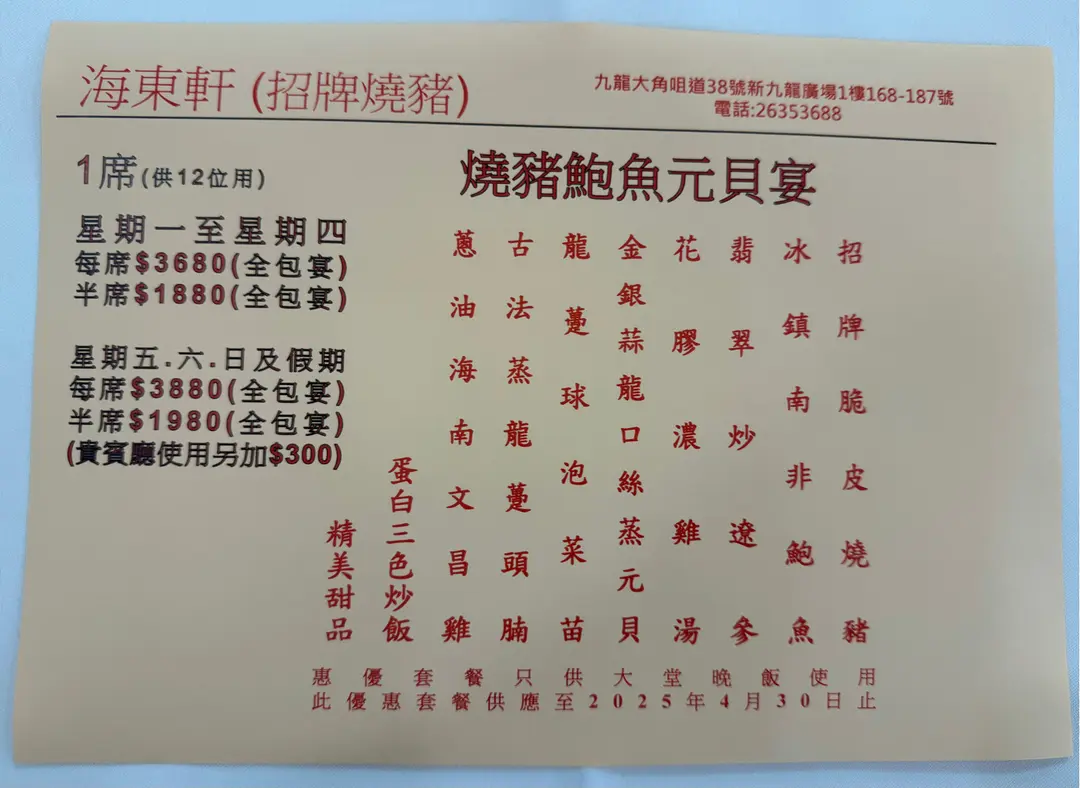 海東軒 (招牌燒豬)
九龍大角咀道38號新九龍廣場1樓168-187號
電話:26353688
1席(供12位用)
星期一至星期四
每席$3680(全包宴)
半席$1880(全包宴)
星期五.六.日及假期
每席$3880(全包宴)
半席$1980(全包宴)
(貴賓廳使用另加$300)
燒豬鮑魚元貝宴
招牌脆皮燒豬
冰鎮南非鮑魚
翡翠炒遼參
花膠濃雞湯
金銀蒜龍口絲蒸元貝
龍躉球泡菜苗
古法蒸龍躉頭腩
蔥油海南文昌雞
蛋白三色炒飯
精美甜品
惠優套餐只供大堂晚飯使用
此優惠套餐供應至2025年4月30日止